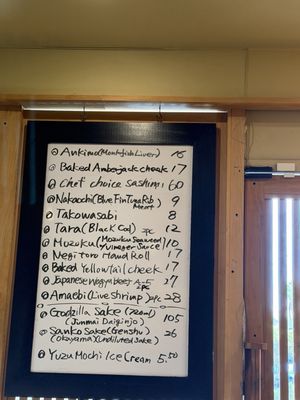 Ankimo (Monkfish Liver) 16
Baked Amberjack cheek 17
Chef choice sashimi 60
Nakaochi (Blue Fin Tuna Rib Meat) 9
Takowasabi 8
Tara (Black Cod) 2pc 12
Mozuku (Mozuku Seaweed Vinegar Sauce) 10
Negitoro Hand Roll 17
Baked Yellowtail cheek 17
Japanese Wagyu beef A-5 2pc 17
Amaebi (Live Shrimp) 2pc 28
Godzilla Sake (720ml) 105
(Junmai Daiginjo)
Sanko Sake (Genshu) 26
(Okayama) (undiluted sake)
Yuzu Mochi Ice Cream 5.50